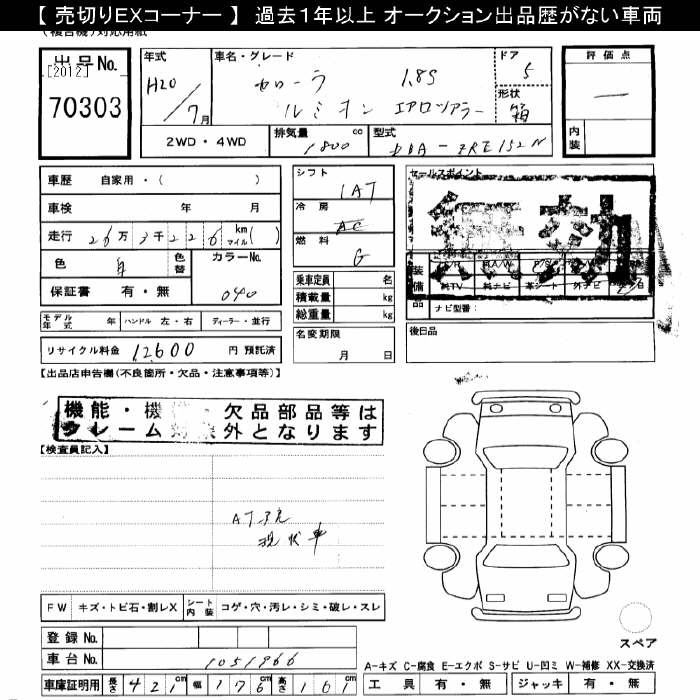 【 売切りEXコーナー 】 過去1年以上 オークション出品歴がない車両
(複合機)対応用紙
出品No.
[2012]
70303
年式
H20
/7月
車名・グレード
カローラ 1.8S
ルミオン エアロツアラー
ドア
5
形状
箱
評価点
—
内装
2WD・4WD
排気量
1800 cc
型式
DBA-ZRE152N
車歴 自家用・( )
車検 年 月
走行 26万3千226 km マイル( )
色 白 色替
カラーNo.
040
保証書 有・無
モデル年式 年 ハンドル 左・右 ディーラー・並行
リサイクル料金 12600 円 預託済
シフト
IAT
冷房
AC
燃料
G
乗車定員 名
積載量 kg
総重量 kg
名変期限
月 日
セールスポイント
装備品
純TV 純ナビ 革シート 外ナビ
ナビ型番:
後日品
【出品店申告欄(不良箇所・欠品・注意事項等)】
機能・機 欠品部品等は
フレーム 外となります
【検査員記入】
AT
現状車
FW キズ・トビ石・割レX シート内装 コゲ・穴・汚レ・シミ・破レ・スレ
登録No.
車台No. 1051966
車庫証明用 長さ 421cm 幅 176cm 高さ 161cm
スペア
A-キズ C-腐食 E-エクボ S-サビ U-凹ミ W-補修 XX-交換済
工具 有・無 ジャッキ 有・無